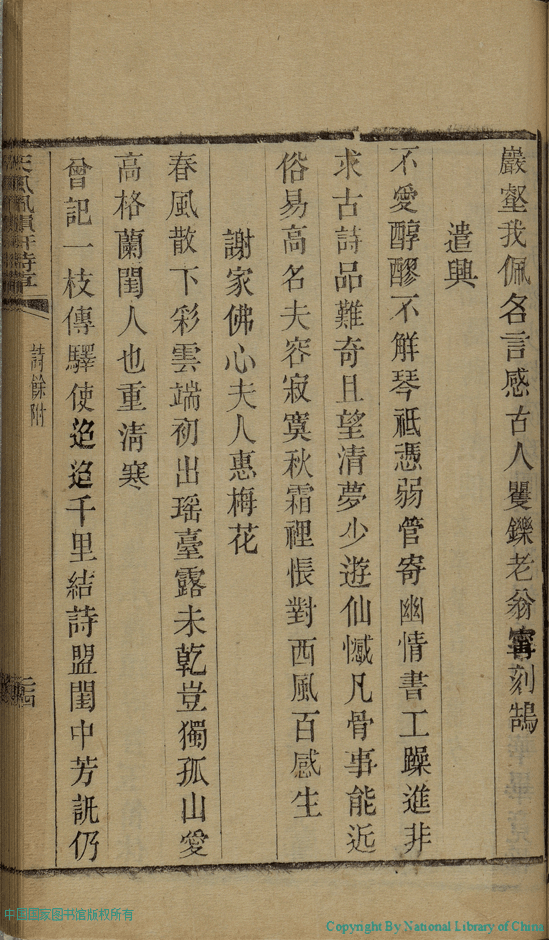 巖壑我佩名言感古人矍鑠老翁寗刻鵠
遣興
不愛醇醪不解琴祗憑弱管寄幽情書工躁進非
求古詩品難奇且望清夢少遊仙憾凡骨事能近
俗易高名夫容寂寞秋霜裡悵對西風百感生
謝家佛心夫人惠梅花
春風散下彩雲端初出瑶臺露未乾豈獨孤山愛
高格蘭閨人也重淸寒
曾記一枝傳驛使迢迢千里結詩盟閨中芳訊仍
詩餘附
二十四
中国国家图书馆版权所有
Copyright By National Library of China